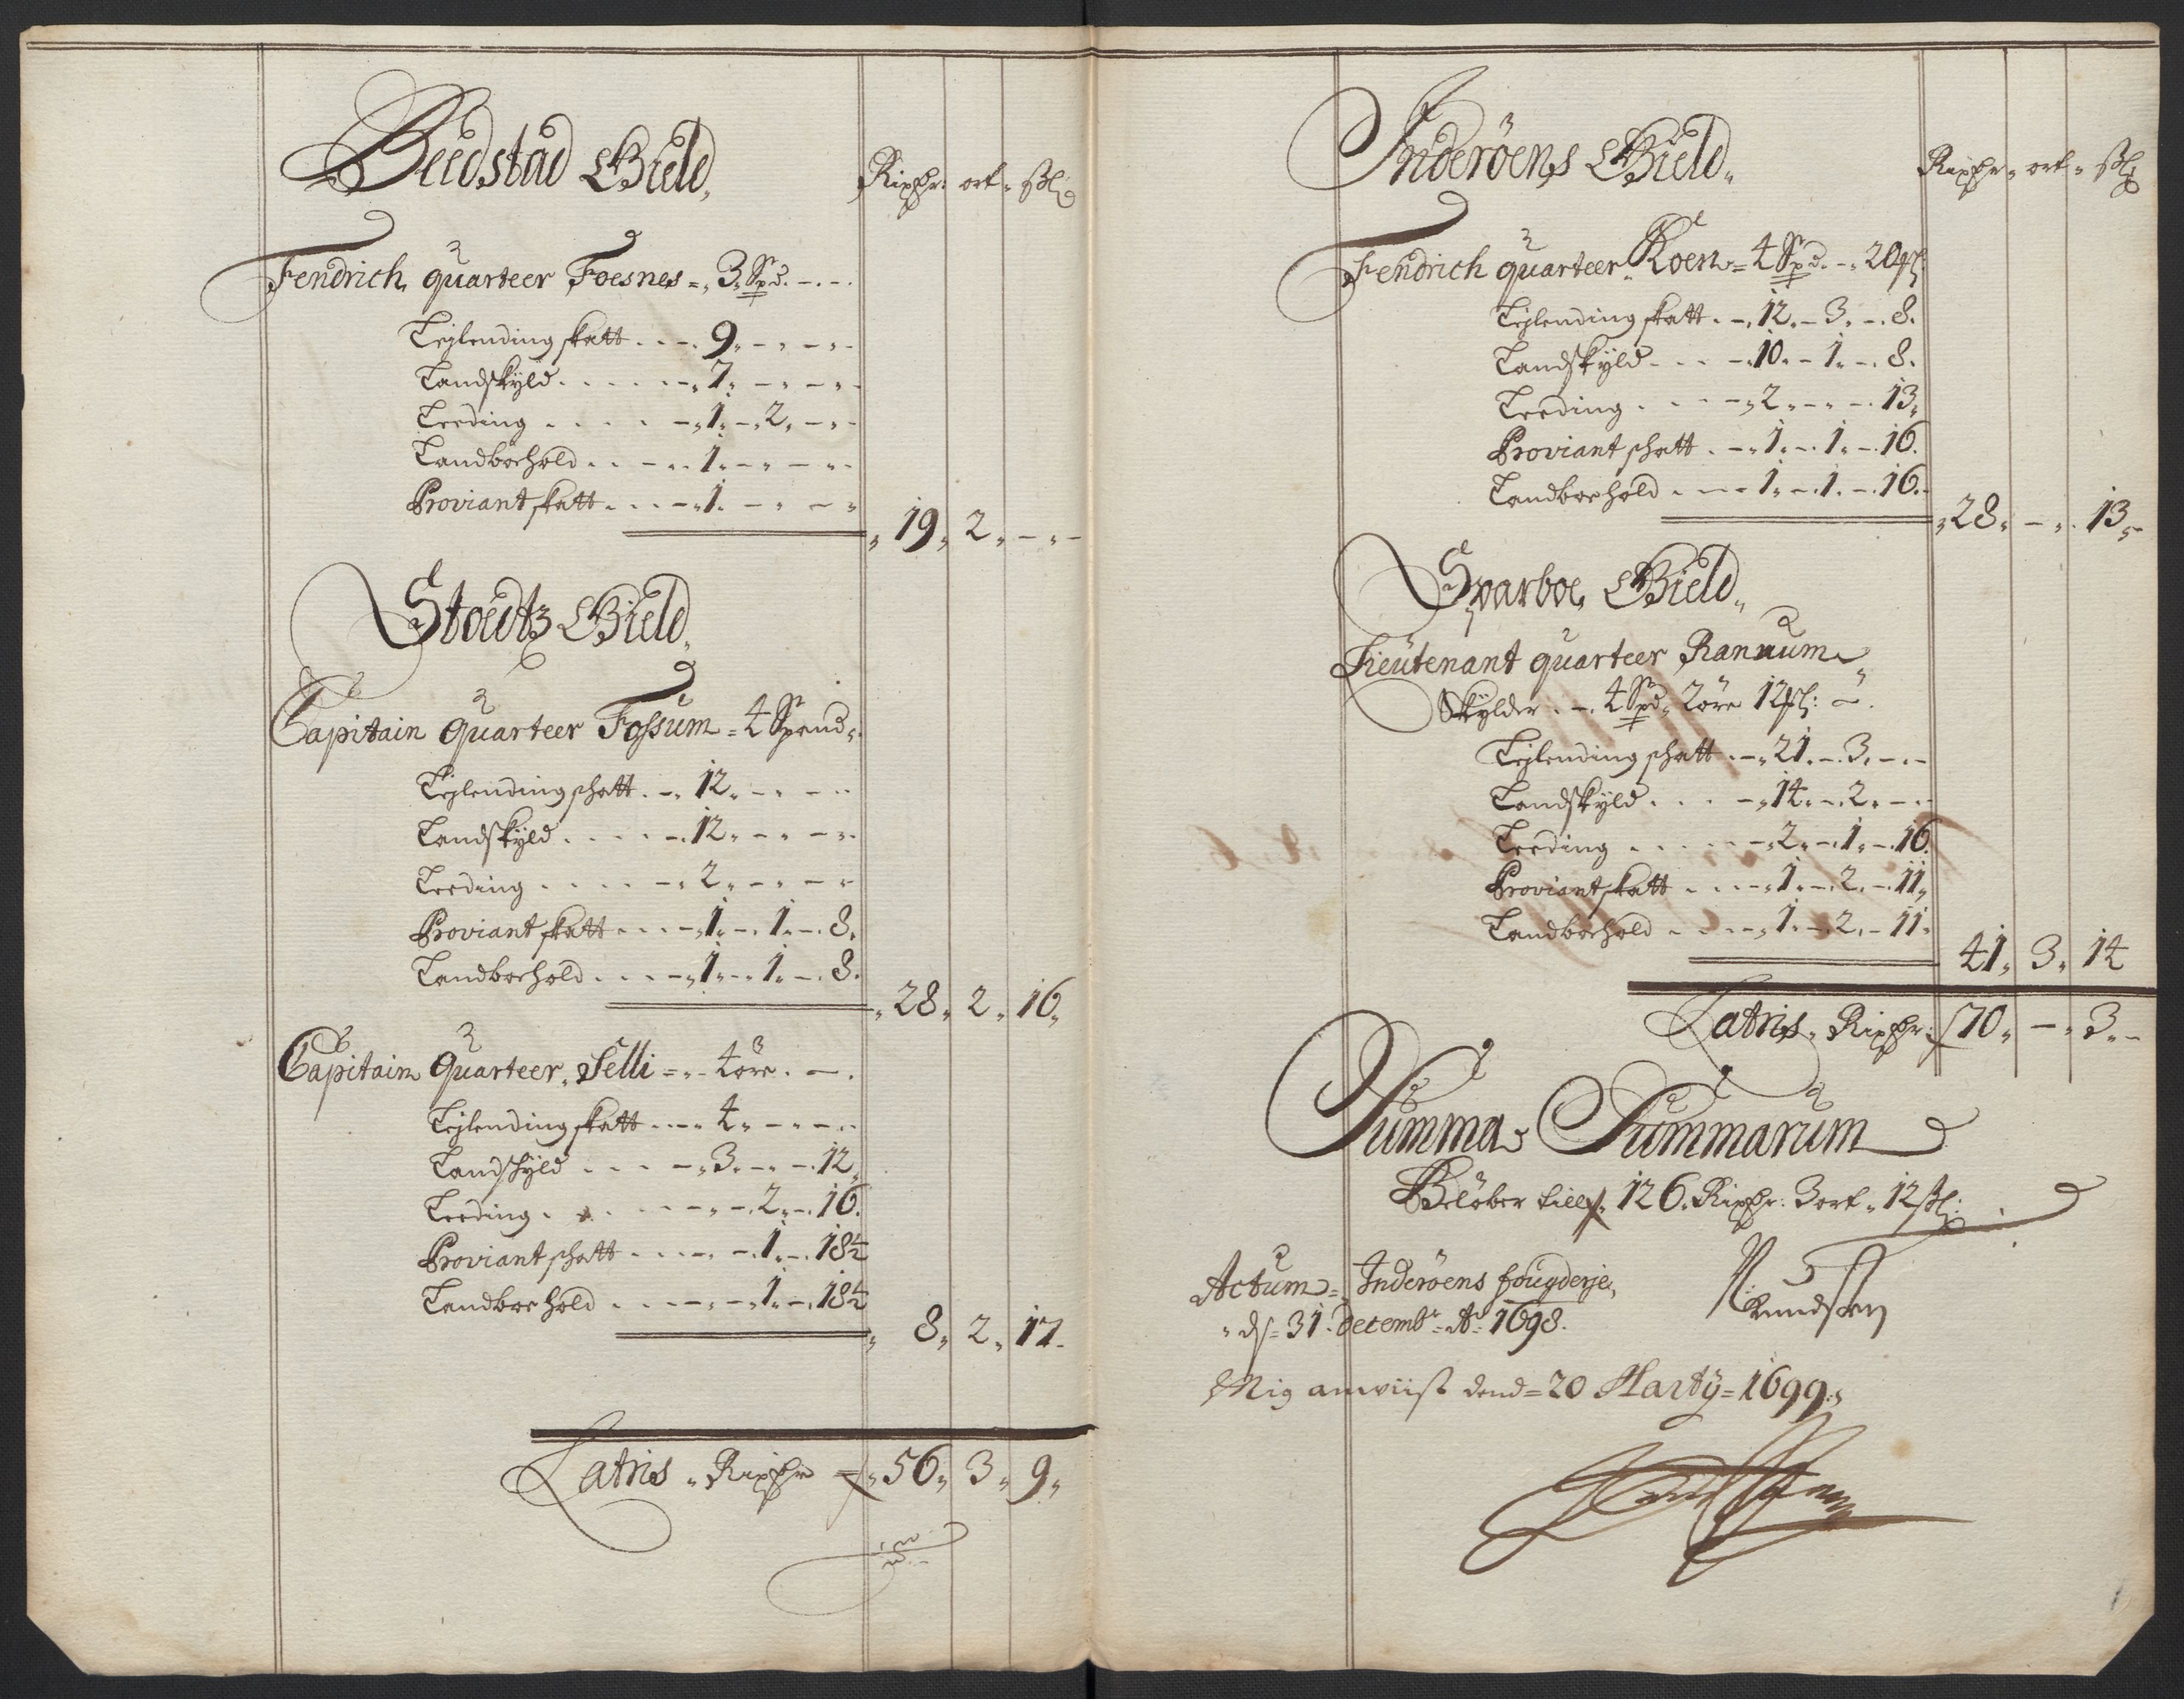 Beedstad Gield,
Rixdr: ort - skl:
Fendrich quarteer Foesnes =, 3, Spd. - . - .
Leylending skatt . . - . 9, - , - , -
Landskÿld . . . . . - , 7, - , - , -
Leeding . . . . - , 1, - , 2, - , -
Landboehold . . - . . 1, - , - , -
Proviant skatt . . . - , 1, - , - -
19, 2, - , -
Stoedtz Gield,
Capitain Quarteer Fossum = 4 Spand,
Leylending schatt . - , 12, - , - - ..
Landskÿld . . . . - . 12, - , - - ,
Leeding . . . . - , 2, - , - , -
Proviant skatt . . . - , 1, - , 1, - , 8,
Landboehold . . . - , 1, - , 1, - , 8.
28, 2, 16,
Capitain Quarteer, Selli = , - 4 öre . - .
Leylending skatt . . - , 4, - , - - ..
Landskÿld . . . - , 3, - , - . 12,
Leeding . . . - , - , 2, - . 16.
Proviant schatt . . . - , - . 1, - . 18½
Landboe hold . . . - , - , 1, - . 18½
8, 2, 17.
Latris, Rixdr = 56, 3, 9,
Inderöens Gield,
Rixdr, ort, skl:
Fendrich quarteer Koen = 4 Spd. - , 20 ml:
Leylending skatt . - , 12, - 3, - . 8.
Landskÿld . . . - , 10, - 1, - . 8.
Leeding . . . - , 2, - , - . 13,
Proviant schatt . - , 1, - . 1, - . 16.
Landboehold . - - , 1, - . 1, - . 16.
28, - , 13,
Sparboe, Gield,
Lieutenant quarteer Rannum,
Skÿlder . - . 4 Spd, 2 öre 12 ml: - .
Leylending schatt . - , 21, - . 3, - , -
Landskÿld . . . - , 14, - . 2, - , -
Leeding . . . . - , 2, - . 1, - . 16.
Proviant skatt . . . - , 1, - . 2, - . 11,
Landboehold . . . - , 1, - . 2, - 11,
41, 3, 14
Latris, Rixdr: 70, - , 3, -
Summa Summarum
Belöber till 126. Rixdr: 3 ort, 12 skl:
Actum = Inderöens fougderje,
ds= 31. decembr: Ao: 1698.
Knudsen
Mig anwiist dend = 20 Martÿ = 1699.